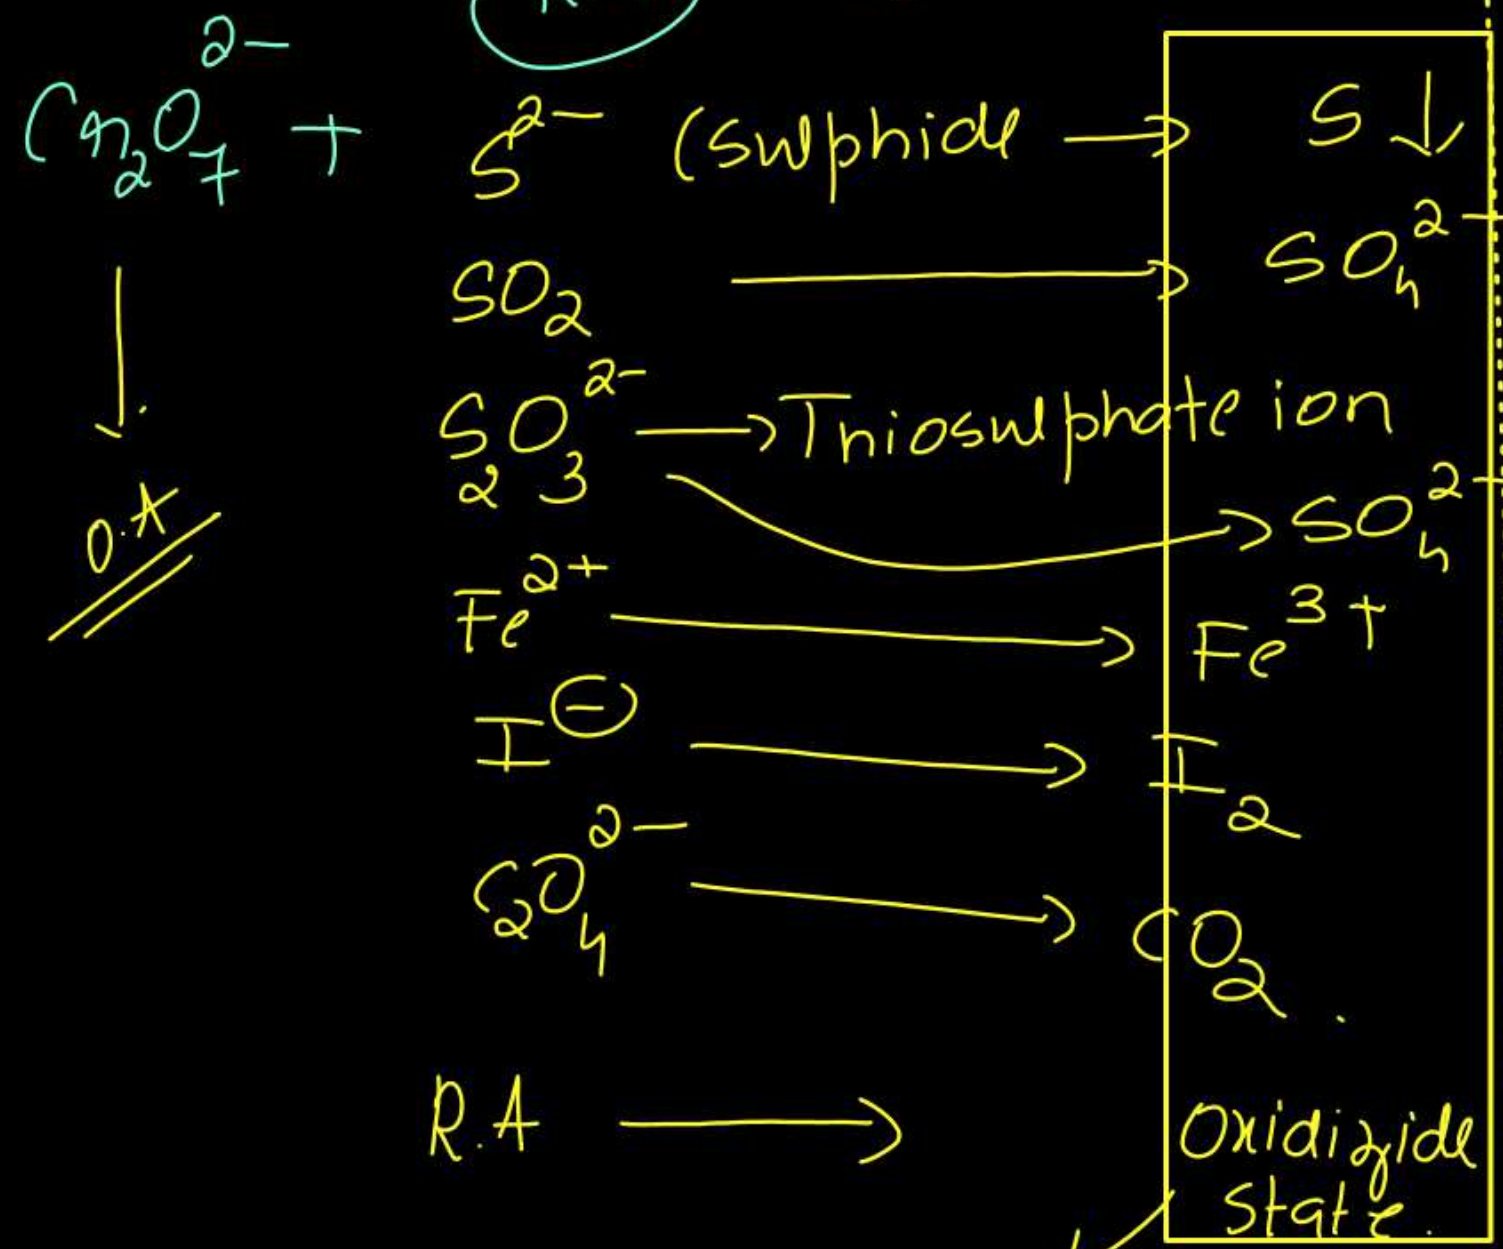 Cr₂O₇²⁻ + S²⁻ (sulphide → S↓
SO₂ → SO₄²⁻
S₂O₃²⁻ → Thiosulphate ion
→ SO₄²⁻
O.A
Fe²⁺ → Fe³⁺
I⊖ → I₂
C₂O₄²⁻ → CO₂.
R.A → Oxidizide
state.